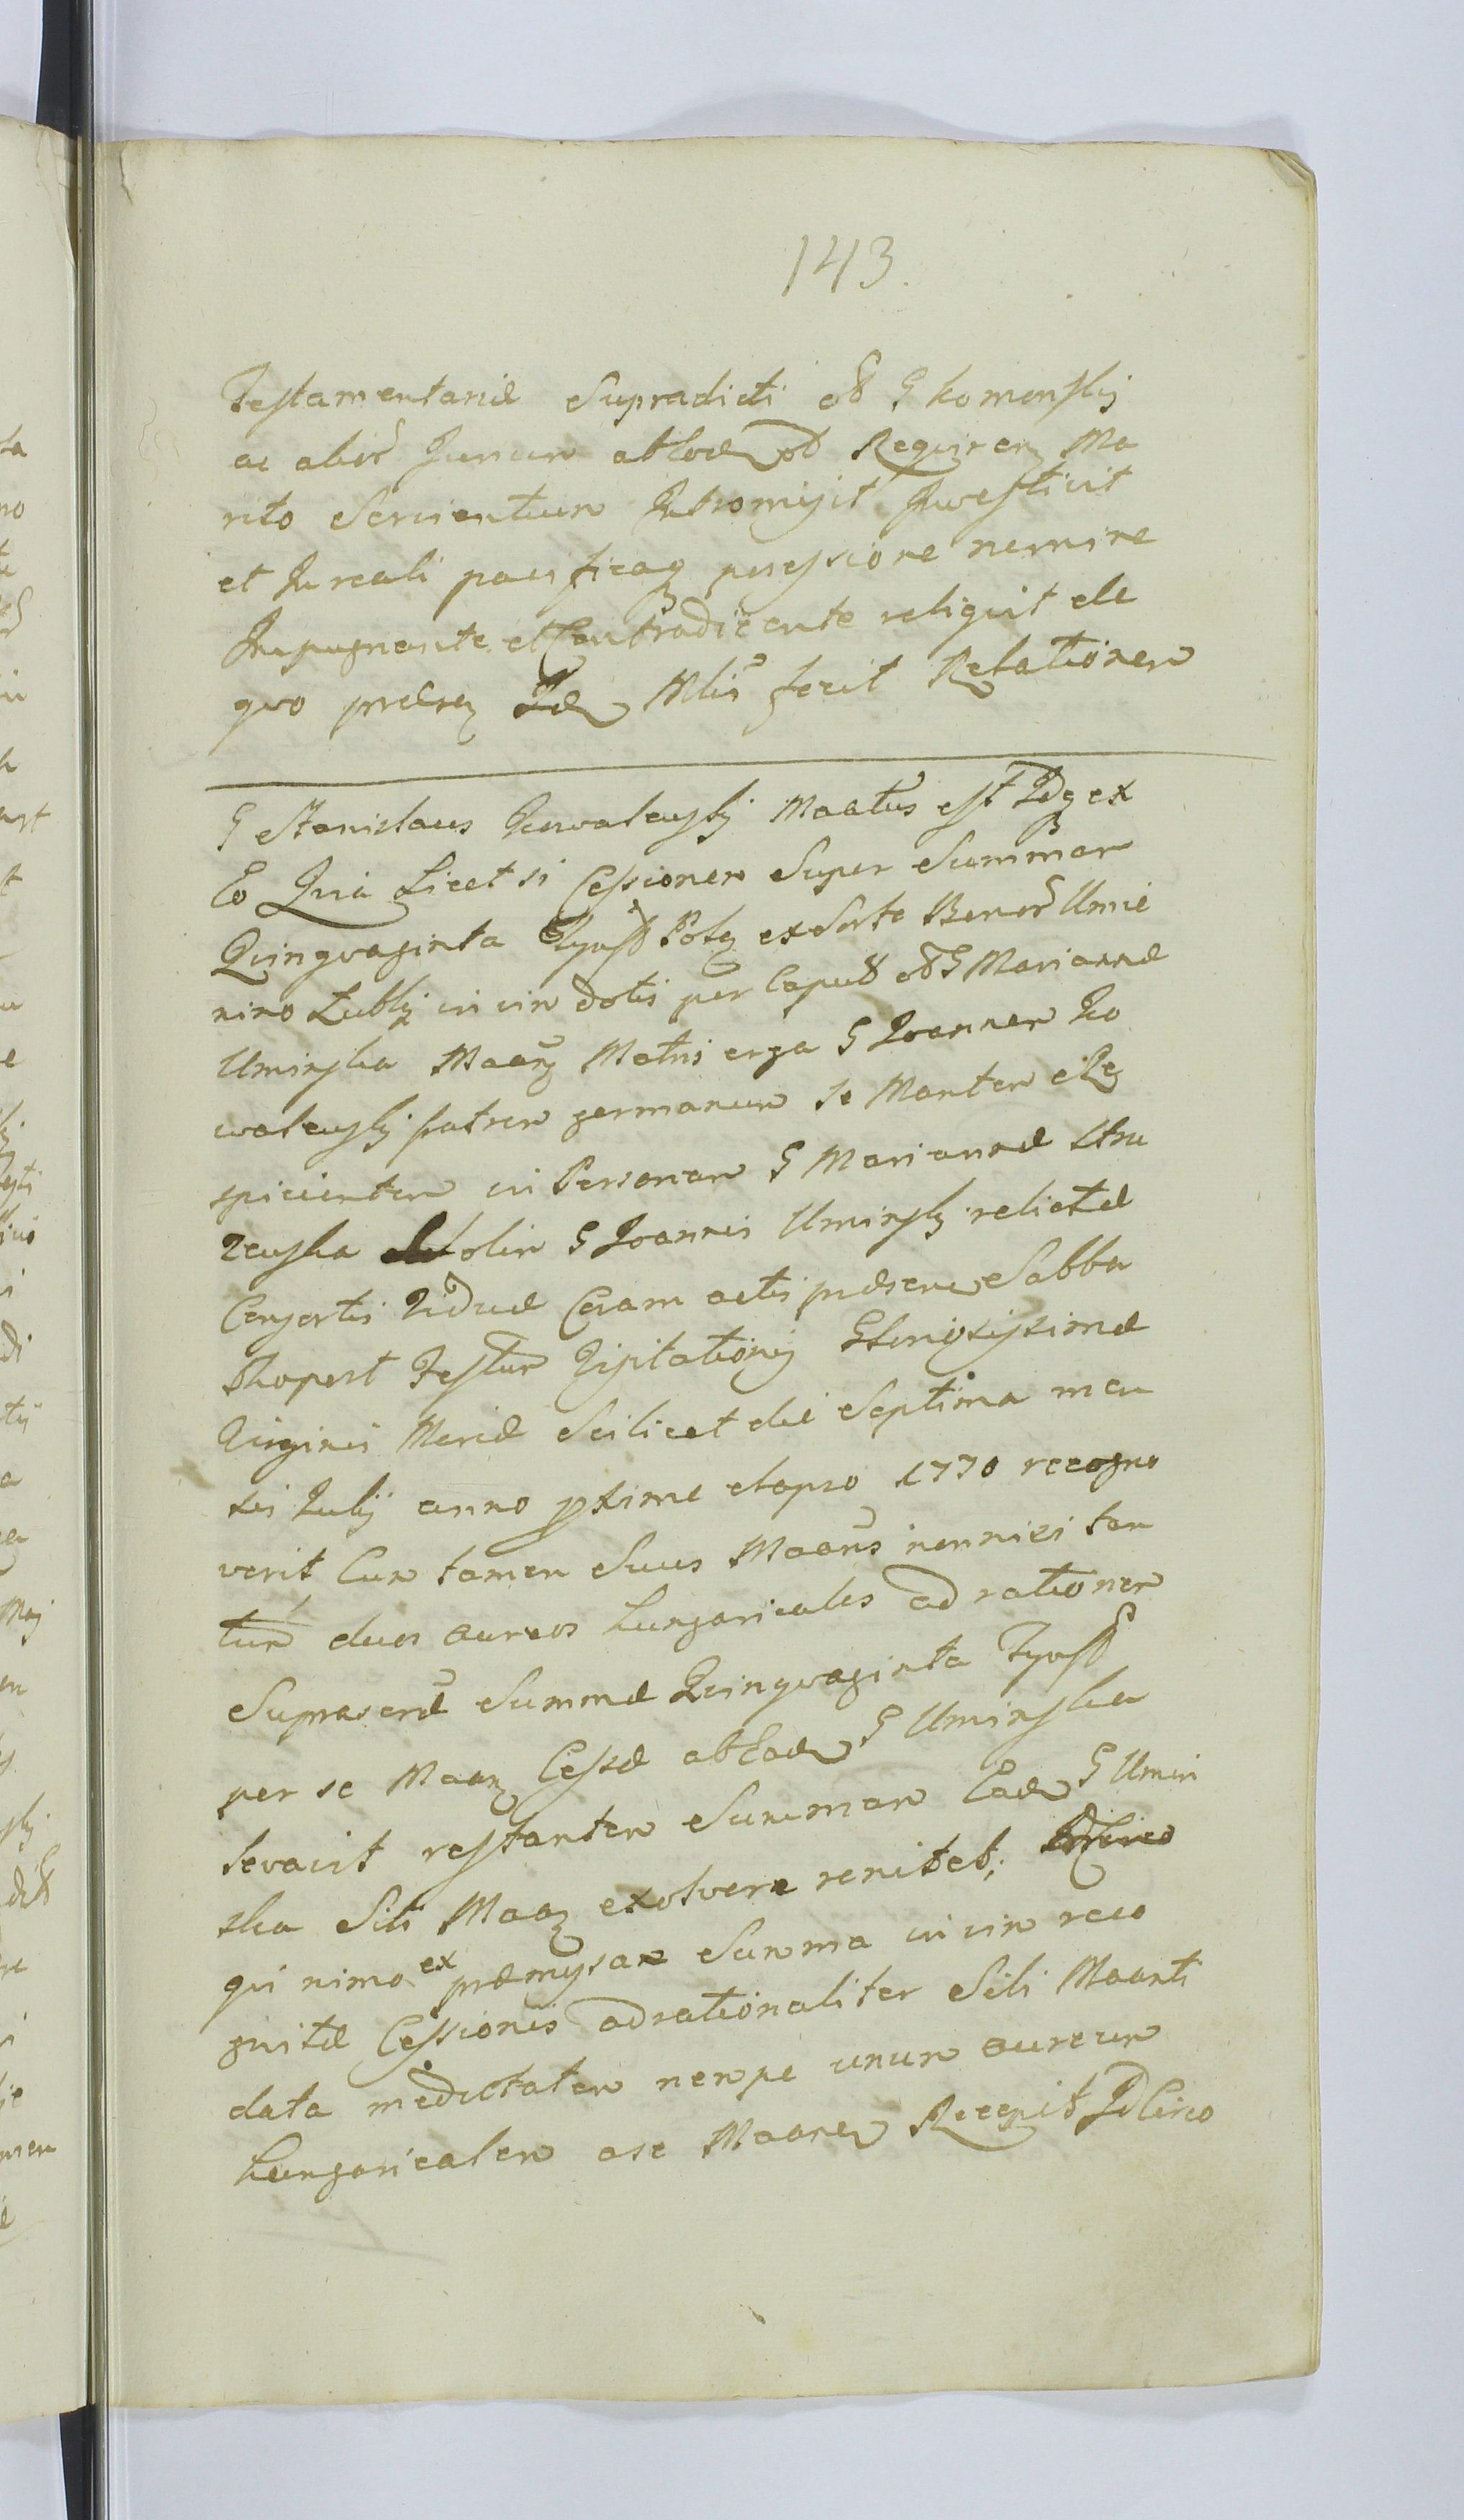 143.
Testamentariæ Supradicti olim G Komonskij
ac alior Jurium ab eod ad Requiren Ma
rito Servientium Intromisit Investivit
et In reali pacificaq possessione nemine
Impugnante et Contradicente reliquit de
quo præsen Idem Mlis fecit Relationem
G Stanislaus Kowalewskij Maatus est Idq ex
Eo Quia Licet si Cessionem Super Summam
Quingvaginta Tynff Polq ex Sorte Bonor Umie
nino in vim dotis per olim G Mariannæ
Uminska Maan Matri erga G Joannem Ko
walewskij fratrem germanum se Mantem eRq
spicientem in Personam G Mariannæ
olim G Joannis Uminskij relictæ
Consortis Viduæ Coram actis præsen Sabba
tho post Festum Visitationis Gloriosissimæ
Virginis Mariæ Scilicet die Septima men
sis Julij anno pxime elapso 1770 recogno
verit Cum tamen Suus Maans nonnisi tan
tum duos aureos hungaricales ad rationem
Suprascræ Summæ Quingvaginta Tynff
per se Maan Cessæ ab Ead G Uminska
levavit restantem Summam Ead G Umin
ska Sibi Maan exolvere renitet;
qui nimo ex præmissa Summa in vim reco
gnitæ Cessionis adrationaliter Sibi Maanti
data medietatem nempe unum aureum
hungaricalem a se Maane Recepit Idcirco